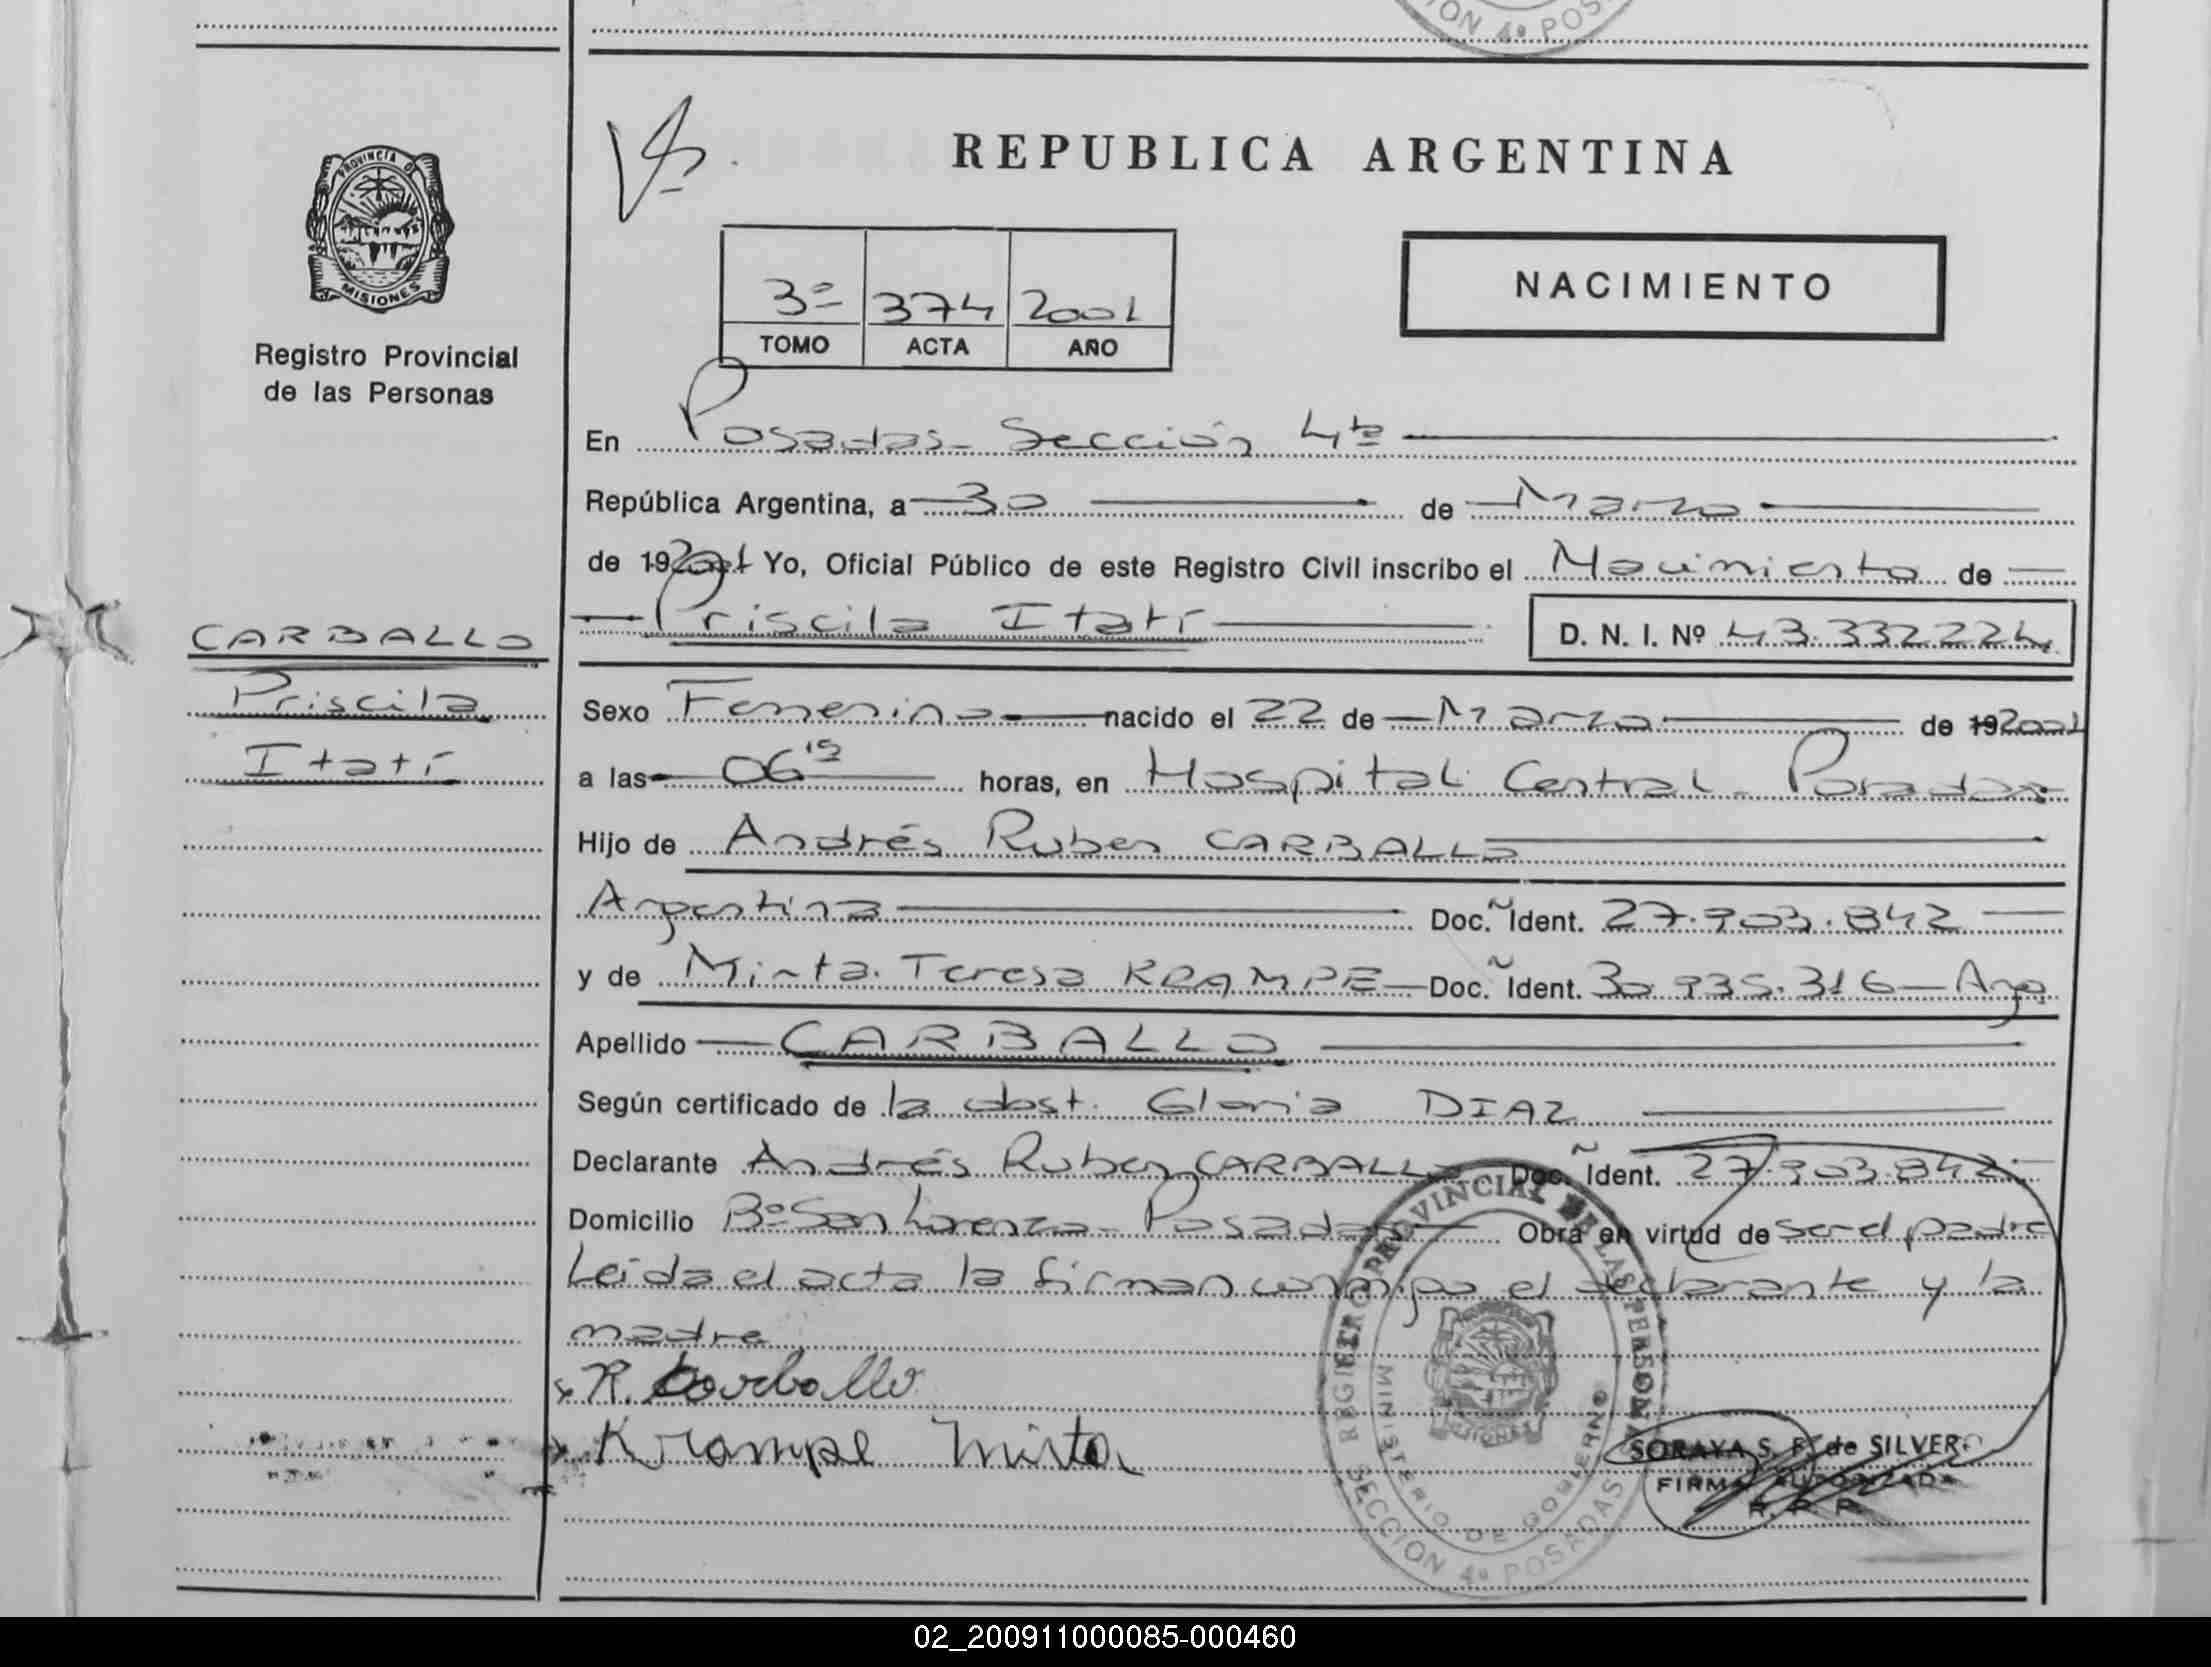 CION 4ª POS
REPUBLICA ARGENTINA
PROVINCIA DE
MISIONES
Registro Provincial
de las Personas
3º 374 2001
TOMO ACTA AÑO
NACIMIENTO
En Posadas - Sección 4ta
República Argentina, a 30 de Marzo
de 19 2001 Yo, Oficial Público de este Registro Civil inscribo el Nacimiento de
Priscila Itatí D. N. I. Nº 43.332224
CARBALLO
Priscila
Itatí
Sexo Femenino nacido el 22 de Marzo de 19 2001
a las 06 15 horas, en Hospital Central - Posadas
Hijo de Andrés Ruben CARBALLO
Argentina Doc. Ident. 27.903.842
y de Mirta Teresa KRAMPE Doc. Ident. 30.935.316 - Arg.
Apellido CARBALLO
Según certificado de la obst. Gloria DIAZ
Declarante Andrés Ruben CARBALLO Doc. Ident. 27.903.842
Domicilio Bº San Lorenzo - Posadas Obra en virtud de ser el padre
Leida el acta la firman conmigo el declarante y la
madre
R. Carballo
Krampe Mirta
REGISTRO PROVINCIAL DE LAS PERSONAS
MINISTERIO DE GOBIERNO
MISIONES
SECCION 4ª POSADAS
SORAYA S. F. de SILVERO
FIRMA AUTORIZADA
R. P. P.
02_200911000085-000460